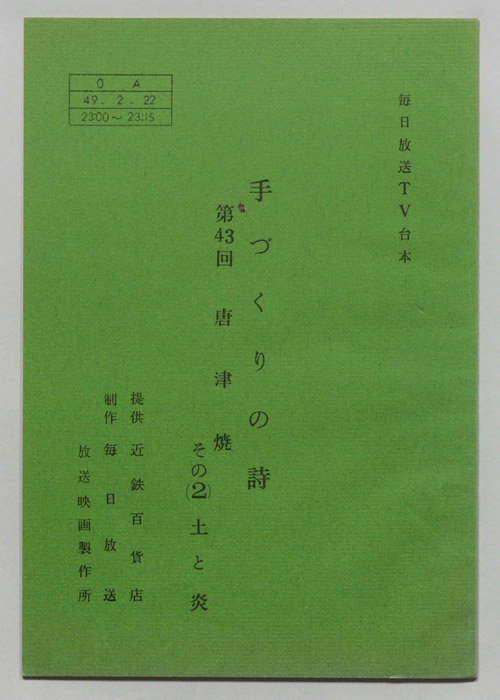 毎日放送TV台本
O A
49. 2. 22
23:00〜23:15
手づくりの詩
第43回 唐津焼
その(2)土と炎
提供 近鉄百貨店
制作 毎日放送
放送映画製作所